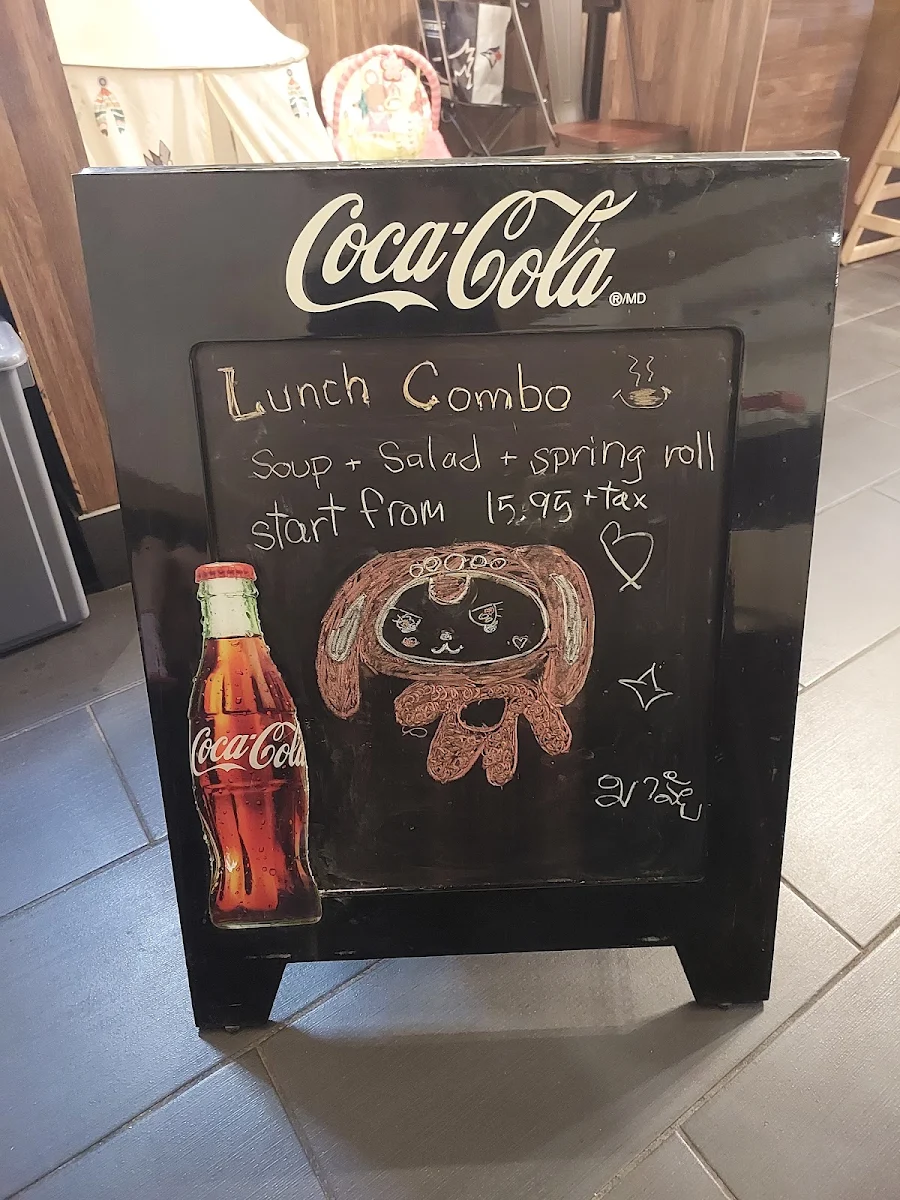 Coca-Cola
®/MD
Lunch Combo
Soup + Salad + spring roll
start from 15.95 + tax
Coca-Cola